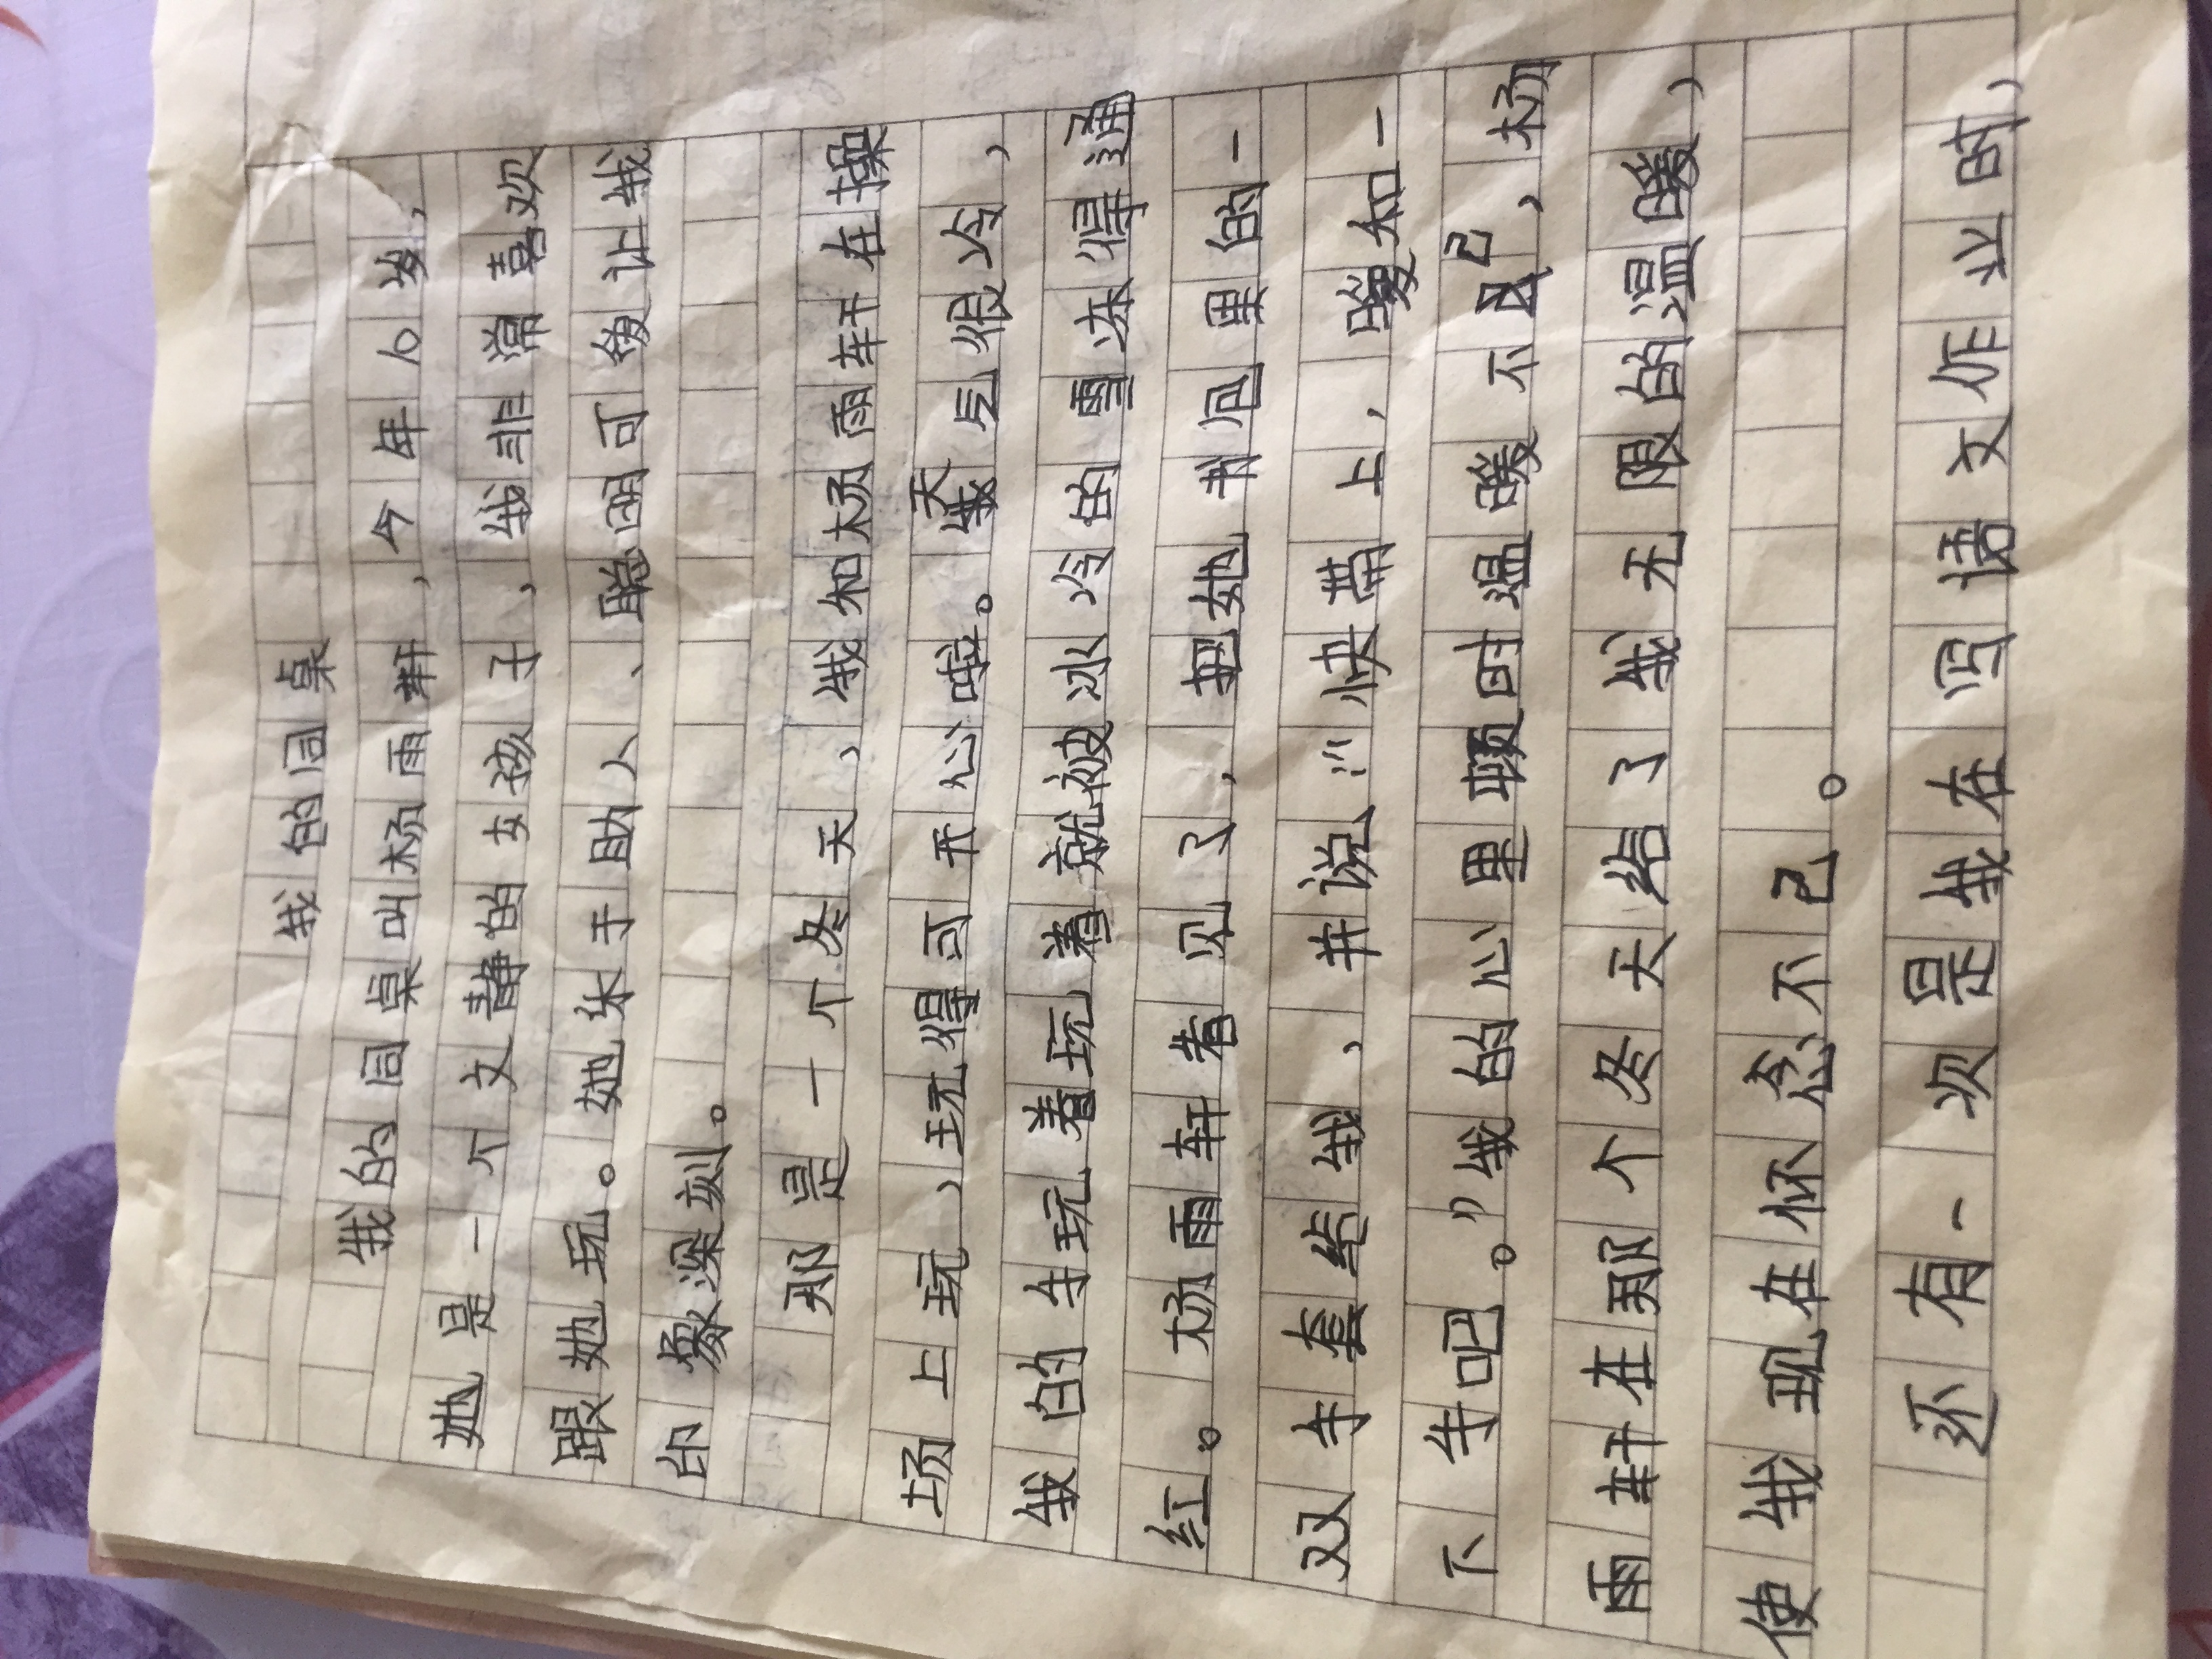 我的同桌
我的同桌叫杨雨轩，今年10岁，
她是一个文静的女孩子，我非常喜欢
跟她玩。她乐于助人、聪明可爱让我
印象深刻。
那是一个冬天，我和杨雨轩在操
场上玩，玩得可开心啦。天气很冷，
我的手玩着玩着就被冰冷的雪冻得通
红。杨雨轩看见了，把她书包里的一
双手套给我，并说：“快带上，暖和一
下手吧。”我的心里顿时温暖不已，杨
雨轩在那个冬天给了我无限的温暖，
使我现在怀念不已。
还有一次是我在写语文作业时，